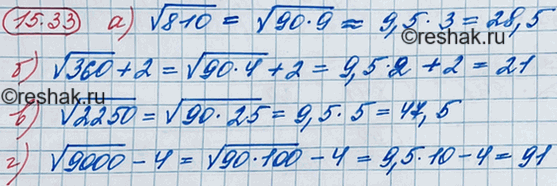 15.33 а) √810 = √90·9 ≈ 9,5·3 = 28,5
©reshak.ru
б) √360 + 2 = √90·4 + 2 = 9,5·2 + 2 = 21
в) √2250 = √90·25 = 9,5·5 = 47,5
©reshak.ru
г) √9000 - 4 = √90·100 - 4 = 9,5·10 - 4 = 91